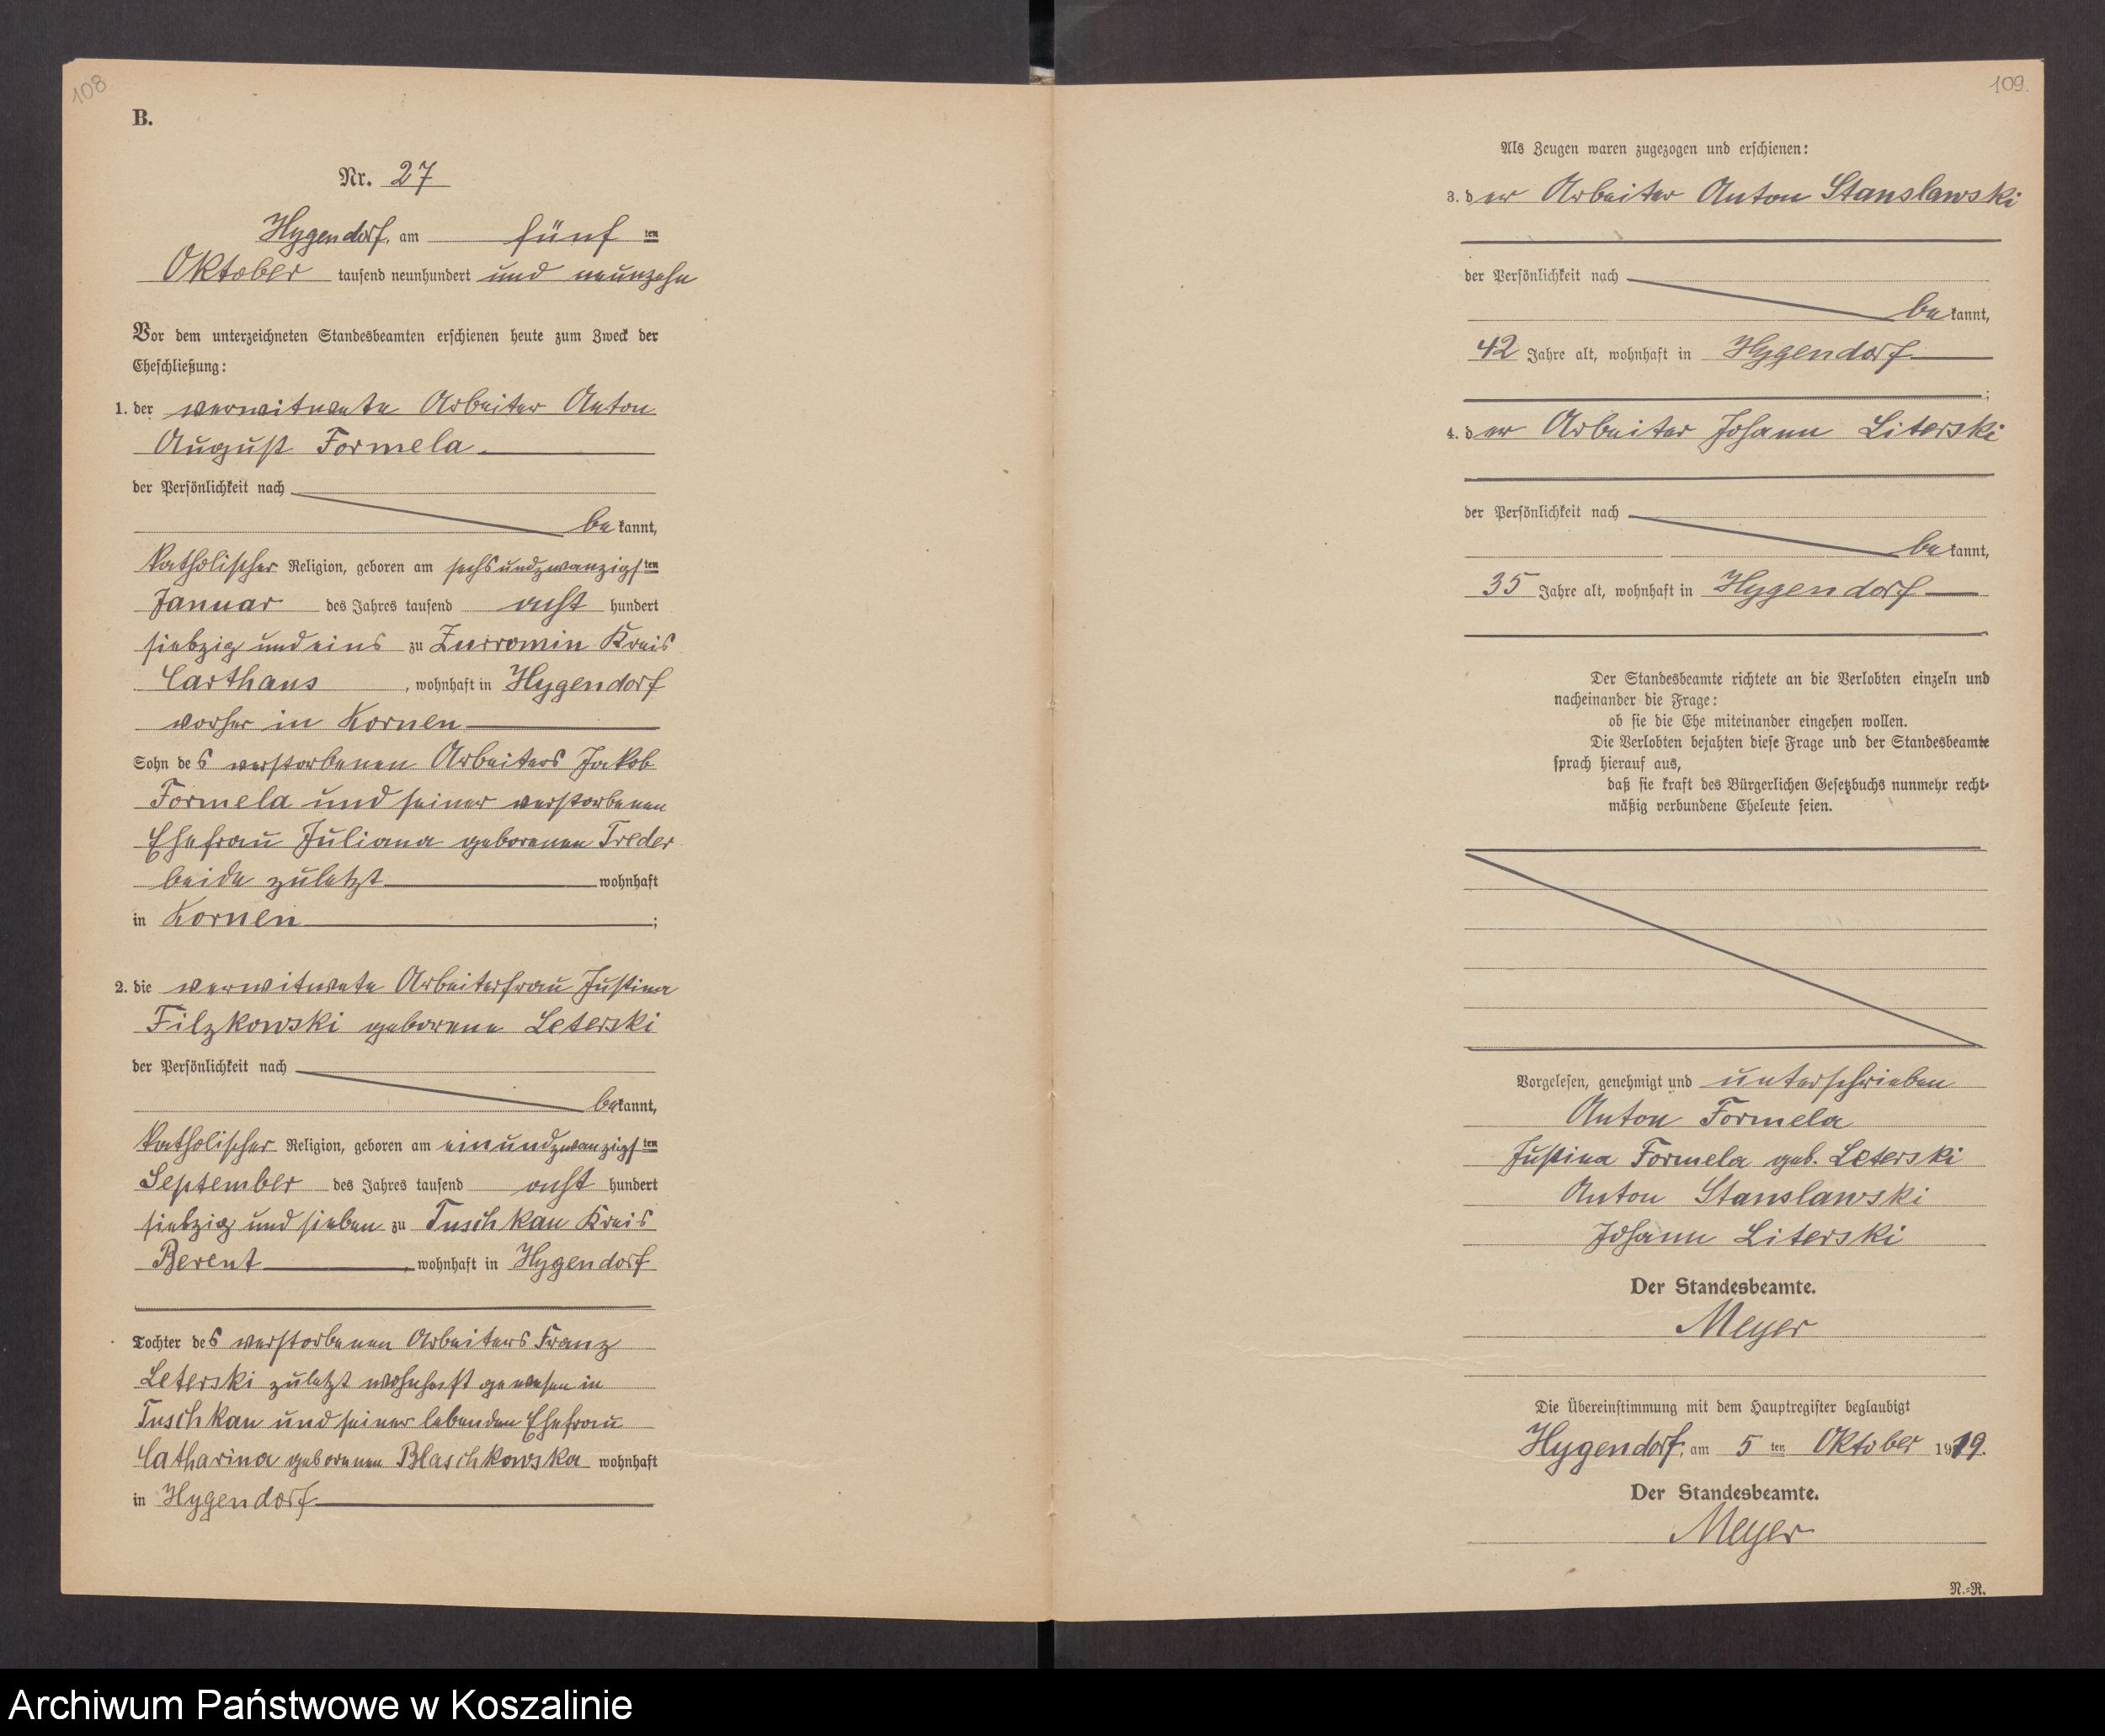 108
B.
Nr. 27
Hygendorf, am fünf ten
Oktober tausend neunhundert und neunzehn
Vor dem unterzeichneten Standesbeamten erschienen heute zum Zweck der
Eheschließung:
1. der verwitwete Arbeiter Anton
August Formela
der Persönlichkeit nach
bekannt,
katholischer Religion, geboren am sechsundzwanzigsten
Januar des Jahres tausend acht hundert
siebzig und eins zu Zurromin Kreis
Carthaus, wohnhaft in Hygendorf
vorher in Kornen
Sohn des verstorbenen Arbeiters Jakob
Formela und seiner verstorbenen
Ehefrau Juliana geborenen Treder
beide zuletzt wohnhaft
in Kornen;
2. die verwitwete Arbeiterfrau Justina
Filzkowski geborene Leterski
der Persönlichkeit nach
bekannt,
katholischer Religion, geboren am einundzwanzigsten
September des Jahres tausend acht hundert
siebzig und sieben zu Tuschkau Kreis
Berent, wohnhaft in Hygendorf
Tochter des verstorbenen Arbeiters Franz
Leterski zuletzt wohnhaft gewesen in
Tuschkau und seiner lebenden Ehefrau
Catharina geborenen Blaschkowska wohnhaft
in Hygendorf
109.
Als Zeugen waren zugezogen und erschienen:
3. der Arbeiter Anton Stanslawski
der Persönlichkeit nach
bekannt,
42 Jahre alt, wohnhaft in Hygendorf
;
4. der Arbeiter Johann Literski
der Persönlichkeit nach
bekannt,
35 Jahre alt, wohnhaft in Hygendorf
Der Standesbeamte richtete an die Verlobten einzeln und
nacheinander die Frage:
ob sie die Ehe miteinander eingehen wollen.
Die Verlobten bejahten diese Frage und der Standesbeamte
sprach hierauf aus,
daß sie kraft des Bürgerlichen Gesetzbuchs nunmehr recht-
mäßig verbundene Eheleute seien.
Vorgelesen, genehmigt und unterschrieben
Anton Formela
Justina Formela geb. Leterski
Anton Stanslawski
Johann Literski
Der Standesbeamte.
Meyer
Die Übereinstimmung mit dem Hauptregister beglaubigt
Hygendorf, am 5 ten Oktober 1919.
Der Standesbeamte.
Meyer
N.-R.
Archiwum Państwowe w Koszalinie